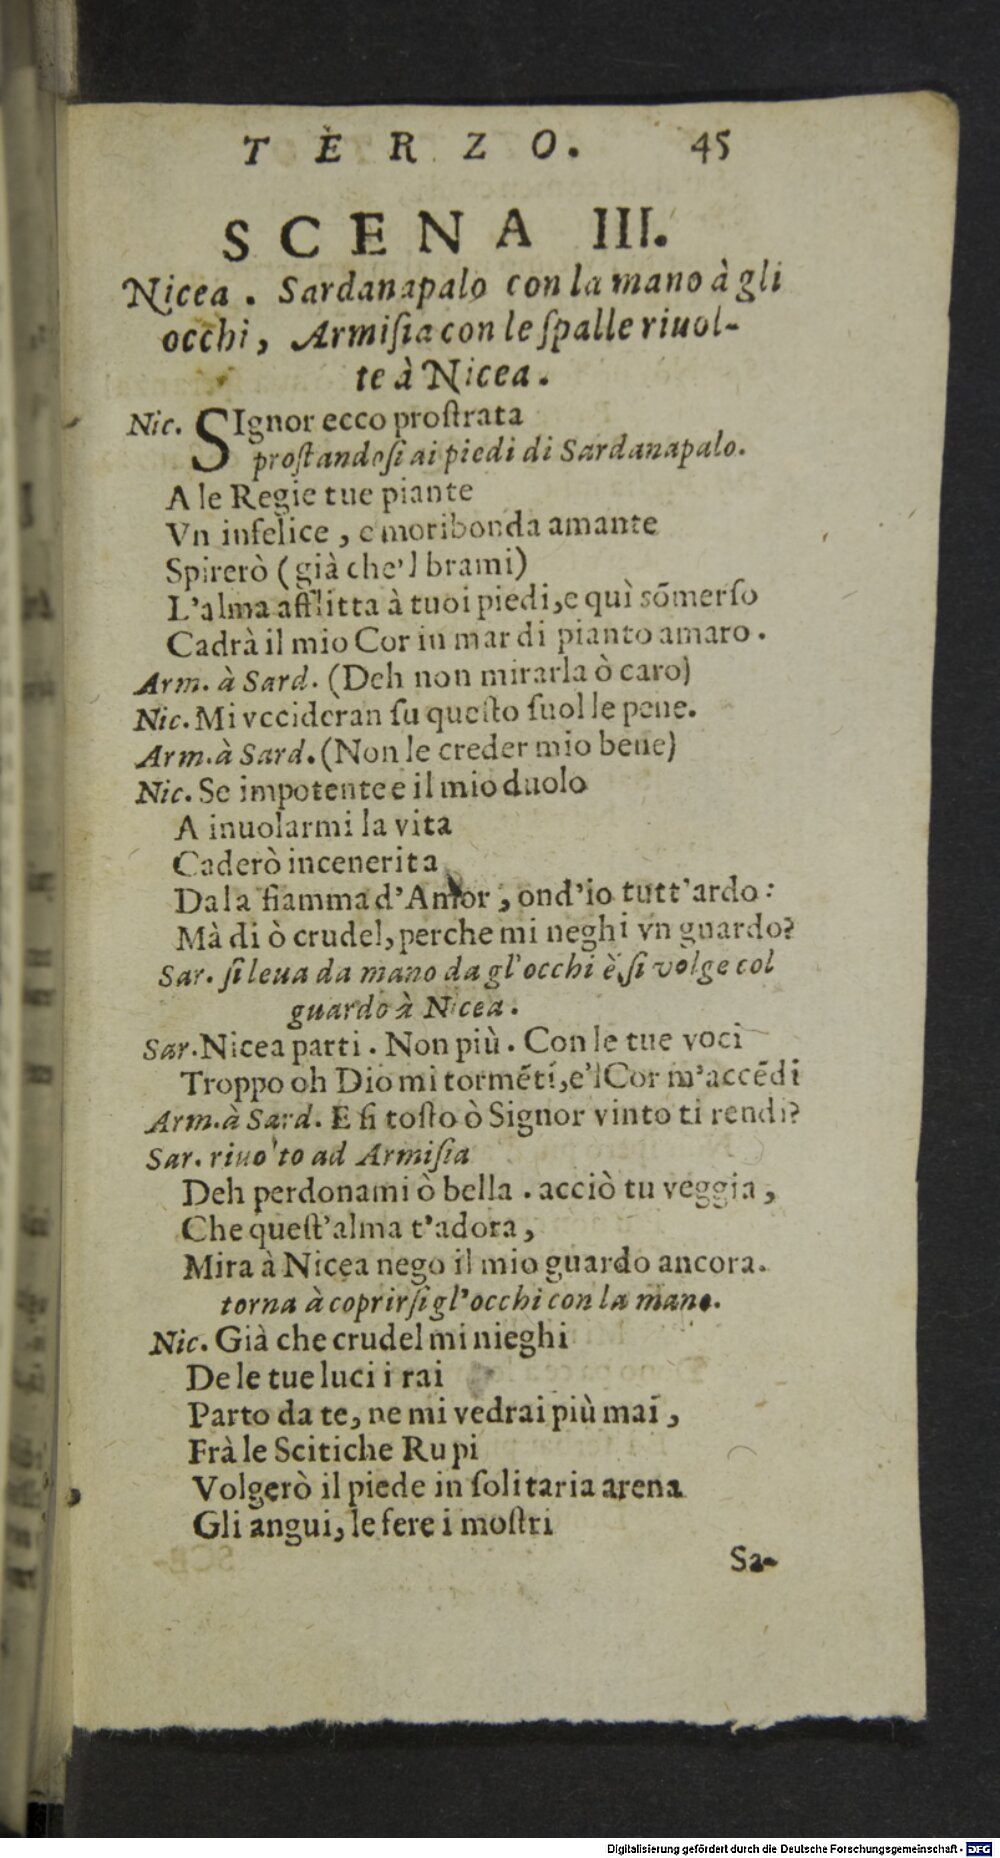 TERZO. 45
SCENA III.
Nicea. Sardanapalo con la mano à gli
occhi, Armiſia con le ſpalle riuol-
te à Nicea.
Nic. SIgnor ecco proſtrata
proſtandoſi ai piedi di Sardanapalo.
A le Regie tue piante
Vn infelice, e moribonda amante
Spirerò (già che'l brami)
L'alma afflitta à tuoi piedi, e quì sõmerſo
Cadrà il mio Cor in mar di pianto amaro.
Arm. à Sard. (Deh non mirarla ò caro)
Nic. Mi vccideran ſu queſto ſuol le pene.
Arm. à Sard. (Non le creder mio bene)
Nic. Se impotente e il mio duolo
A inuolarmi la vita
Caderò incenerita
Da la fiamma d'Amor, ond'io tutt'ardo:
Mà di ò crudel, perche mi neghi vn guardo?
Sar. ſi leua da mano da gl'occhi è ſi volge col
guardo à Nicea.
Sar. Nicea parti. Non più. Con le tue voci
Troppo oh Dio mi tormẽti, e'l Cor m'accẽdi
Arm. à Sard. E ſi toſto ò Signor vinto ti rendi?
Sar. riuolto ad Armiſia
Deh perdonami ò bella. acciò tu veggia,
Che queſt'alma t'adora,
Mira à Nicea nego il mio guardo ancora.
torna à coprirſi gl'occhi con la mano.
Nic. Già che crudel mi nieghi
De le tue luci i rai
Parto da te, ne mi vedrai più mai,
Frà le Scitiche Rupi
Volgerò il piede in ſolitaria arena
Gli angui, le fere i moſtri
Sa-
Digitalisierung gefördert durch die Deutsche Forschungsgemeinschaft - DFG